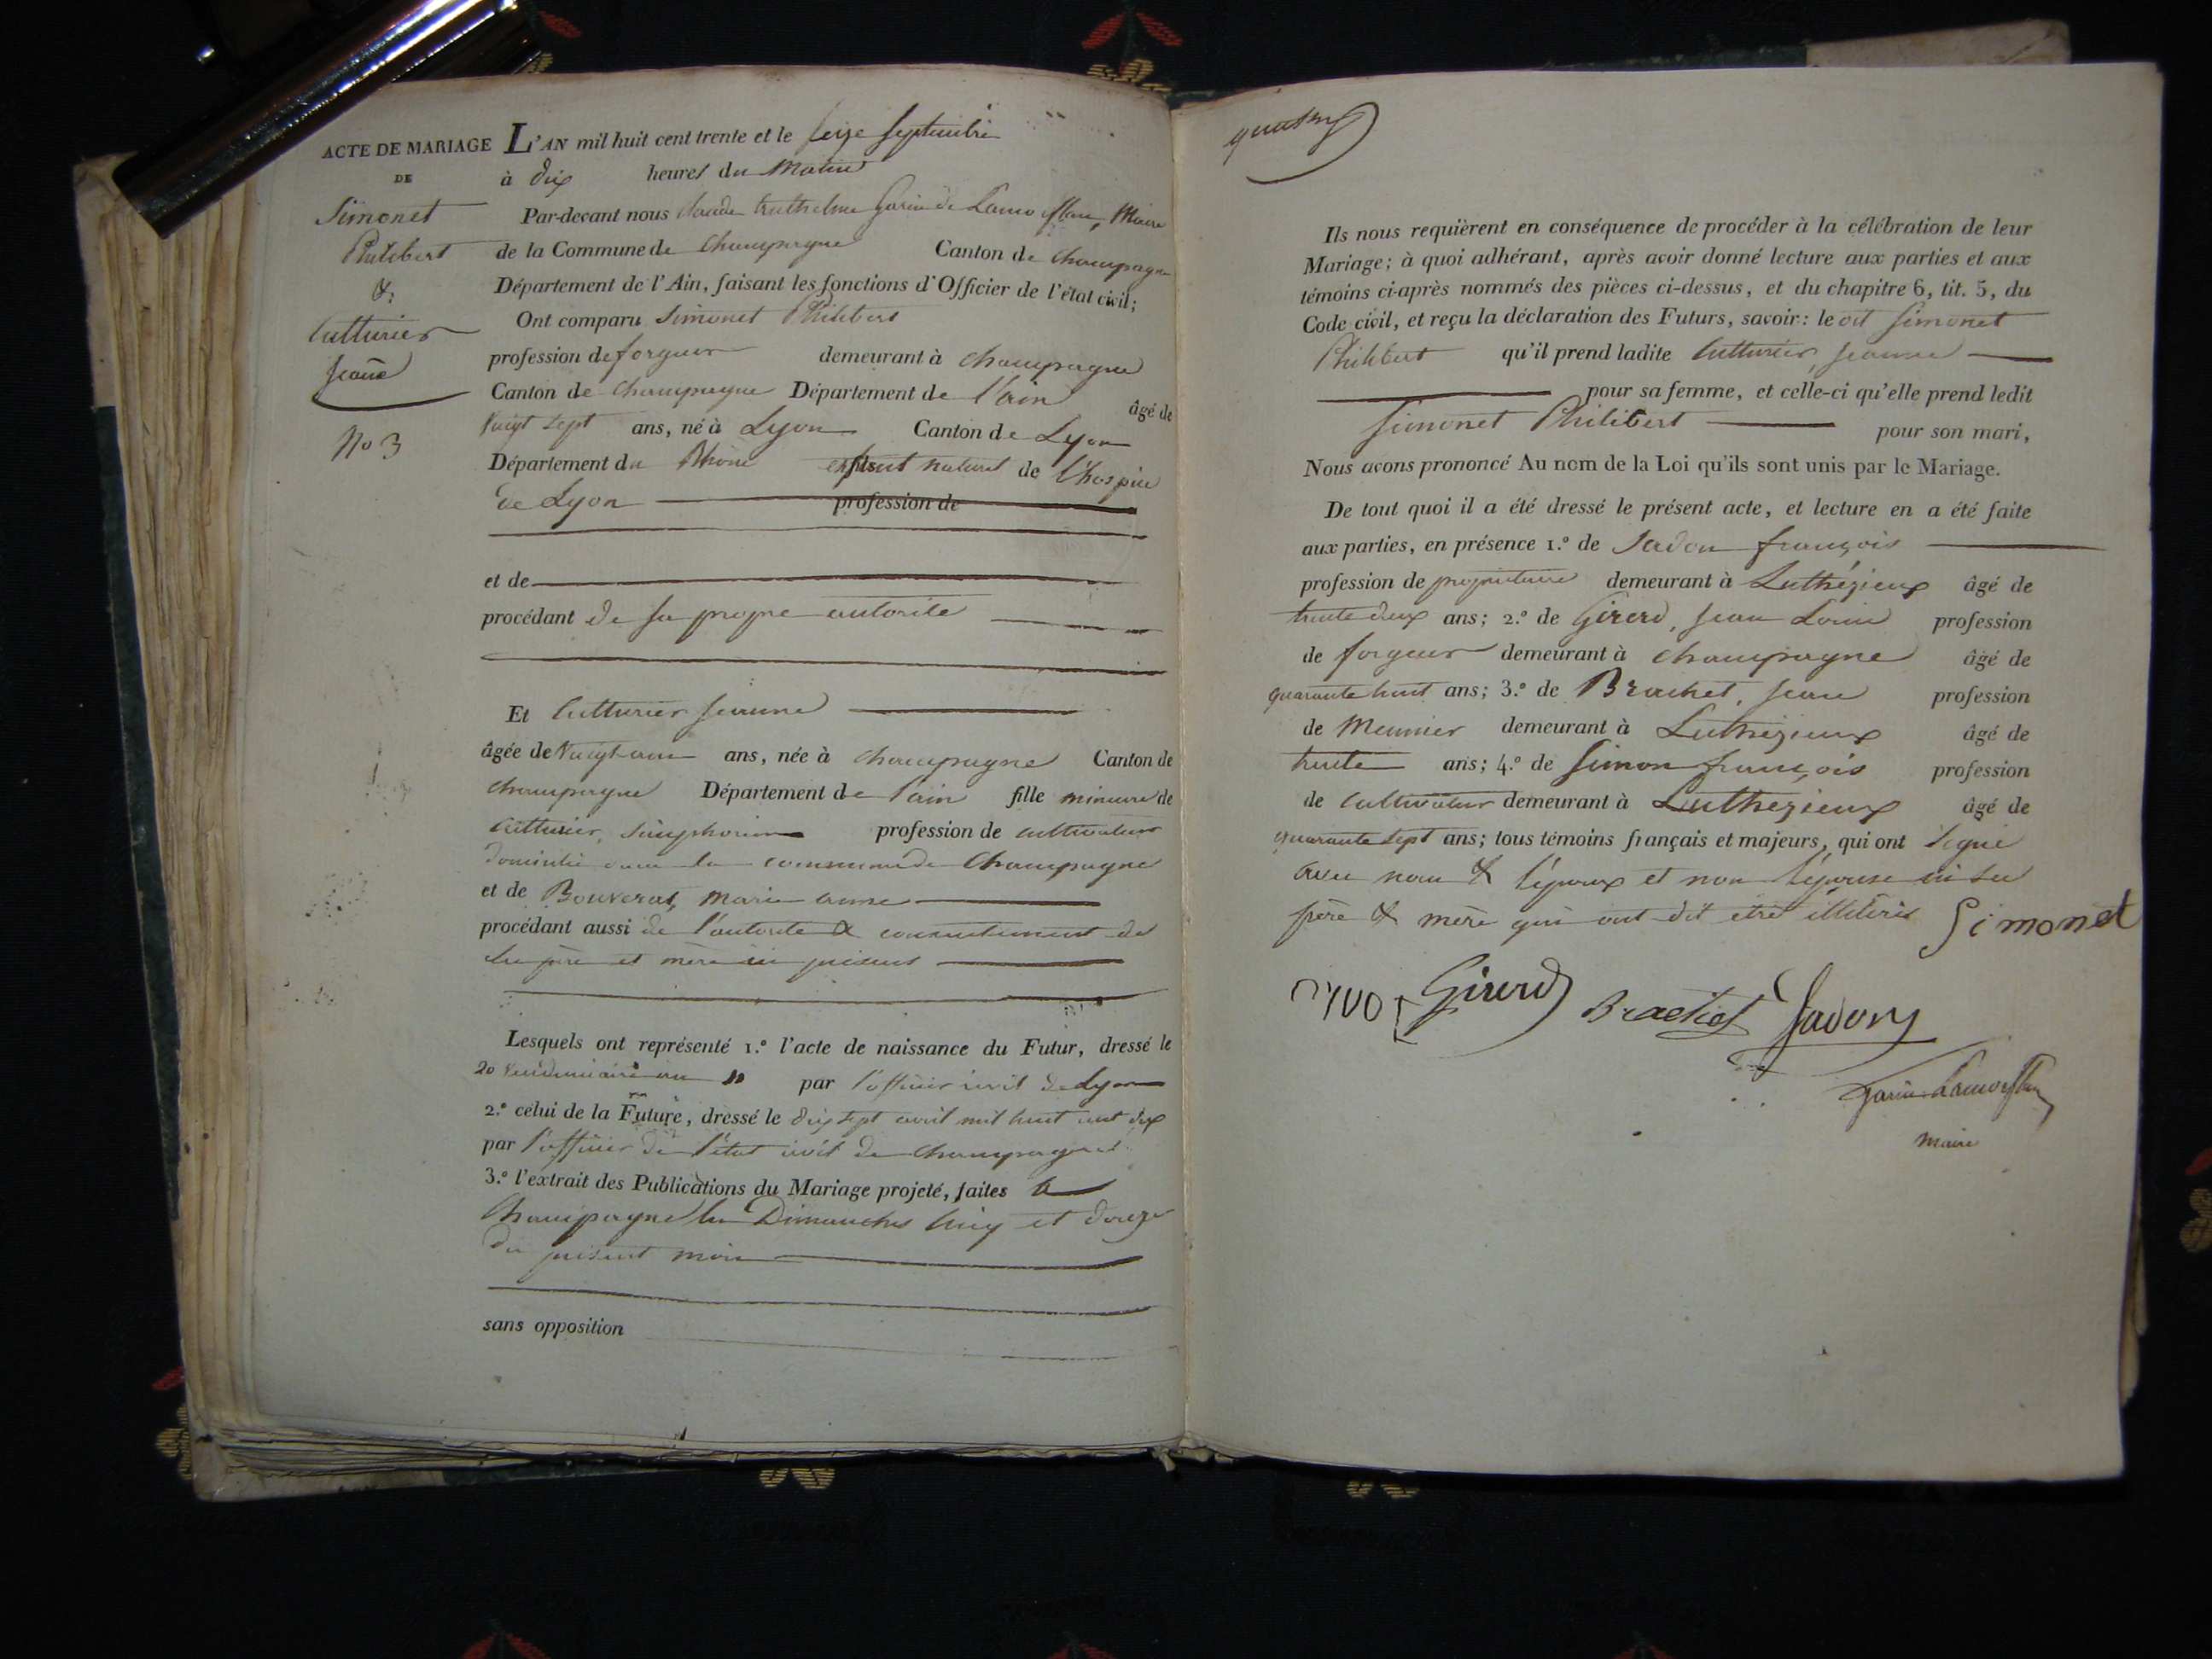 ACTE DE MARIAGE
DE
Simonet
Philibert
&
Cutturier
Jeanne
No 3
L'AN mil huit cent trente et le seize septembre
à dix heures du matin
Par-devant nous Claude Garin de Lamorflan, Maire
de la Commune de Champagne Canton de Champagne
Département de l'Ain, faisant les fonctions d'Officier de l'état civil;
Ont comparu Simonet Philibert
profession de forgeur demeurant à Champagne
Canton de Champagne Département de l'ain âgé de
vingt sept ans, né à Lyon Canton de Lyon
Département du Rhône enfant naturel de l'hospice
de Lyon profession de
et de
procédant de sa propre autorité
Et Cutturier Jeanne
âgée de vingt ans, née à Champagne Canton de
Champagne Département de l'ain fille mineure de
Cutturier, Simphorien profession de cultivateur
domicilié dans la commune de Champagne
et de Bouverat, Marie anne
procédant aussi de l'autorité & consentement de
ses père et mère ici présents
Lesquels ont représenté 1.º l'acte de naissance du Futur, dressé le
20 Vendemiaire an par l'officier civil de Lyon
2.º celui de la Future, dressé le dix sept avril mil huit cent dix
par l'officier de l'état civil de Champagne
3.º l'extrait des Publications du Mariage projeté, faites à
Champagne les Dimanches cinq et douze
du présent mois
sans opposition
Ils nous requièrent en conséquence de procéder à la célébration de leur
Mariage; à quoi adhérant, après avoir donné lecture aux parties et aux
témoins ci-après nommés des pièces ci-dessus, et du chapitre 6, tit. 5, du
Code civil, et reçu la déclaration des Futurs, savoir: le dit Simonet
Philibert qu'il prend ladite Cutturier, Jeanne
pour sa femme, et celle-ci qu'elle prend ledit
Simonet Philibert pour son mari,
Nous avons prononcé Au nom de la Loi qu'ils sont unis par le Mariage.
De tout quoi il a été dressé le présent acte, et lecture en a été faite
aux parties, en présence 1.º de Jadon françois
profession de propriétaire demeurant à Luthézieux âgé de
trente deux ans; 2.º de Girerd, Jean Louis profession
de forgeur demeurant à Champagne âgé de
quarante huit ans; 3.º de Brachet, Jean profession
de Meunier demeurant à Luthézieux âgé de
trente ans; 4.º de Simon françois profession
de cultivateur demeurant à Luthezieux âgé de
quarante sept ans; tous témoins français et majeurs, qui ont signé
avec nous & l'époux et non l'épouse ni ses
père & mère qui ont dit etre illiteris Simonet
Girerd Brachet Jadon
Garin Lamorflan
maire